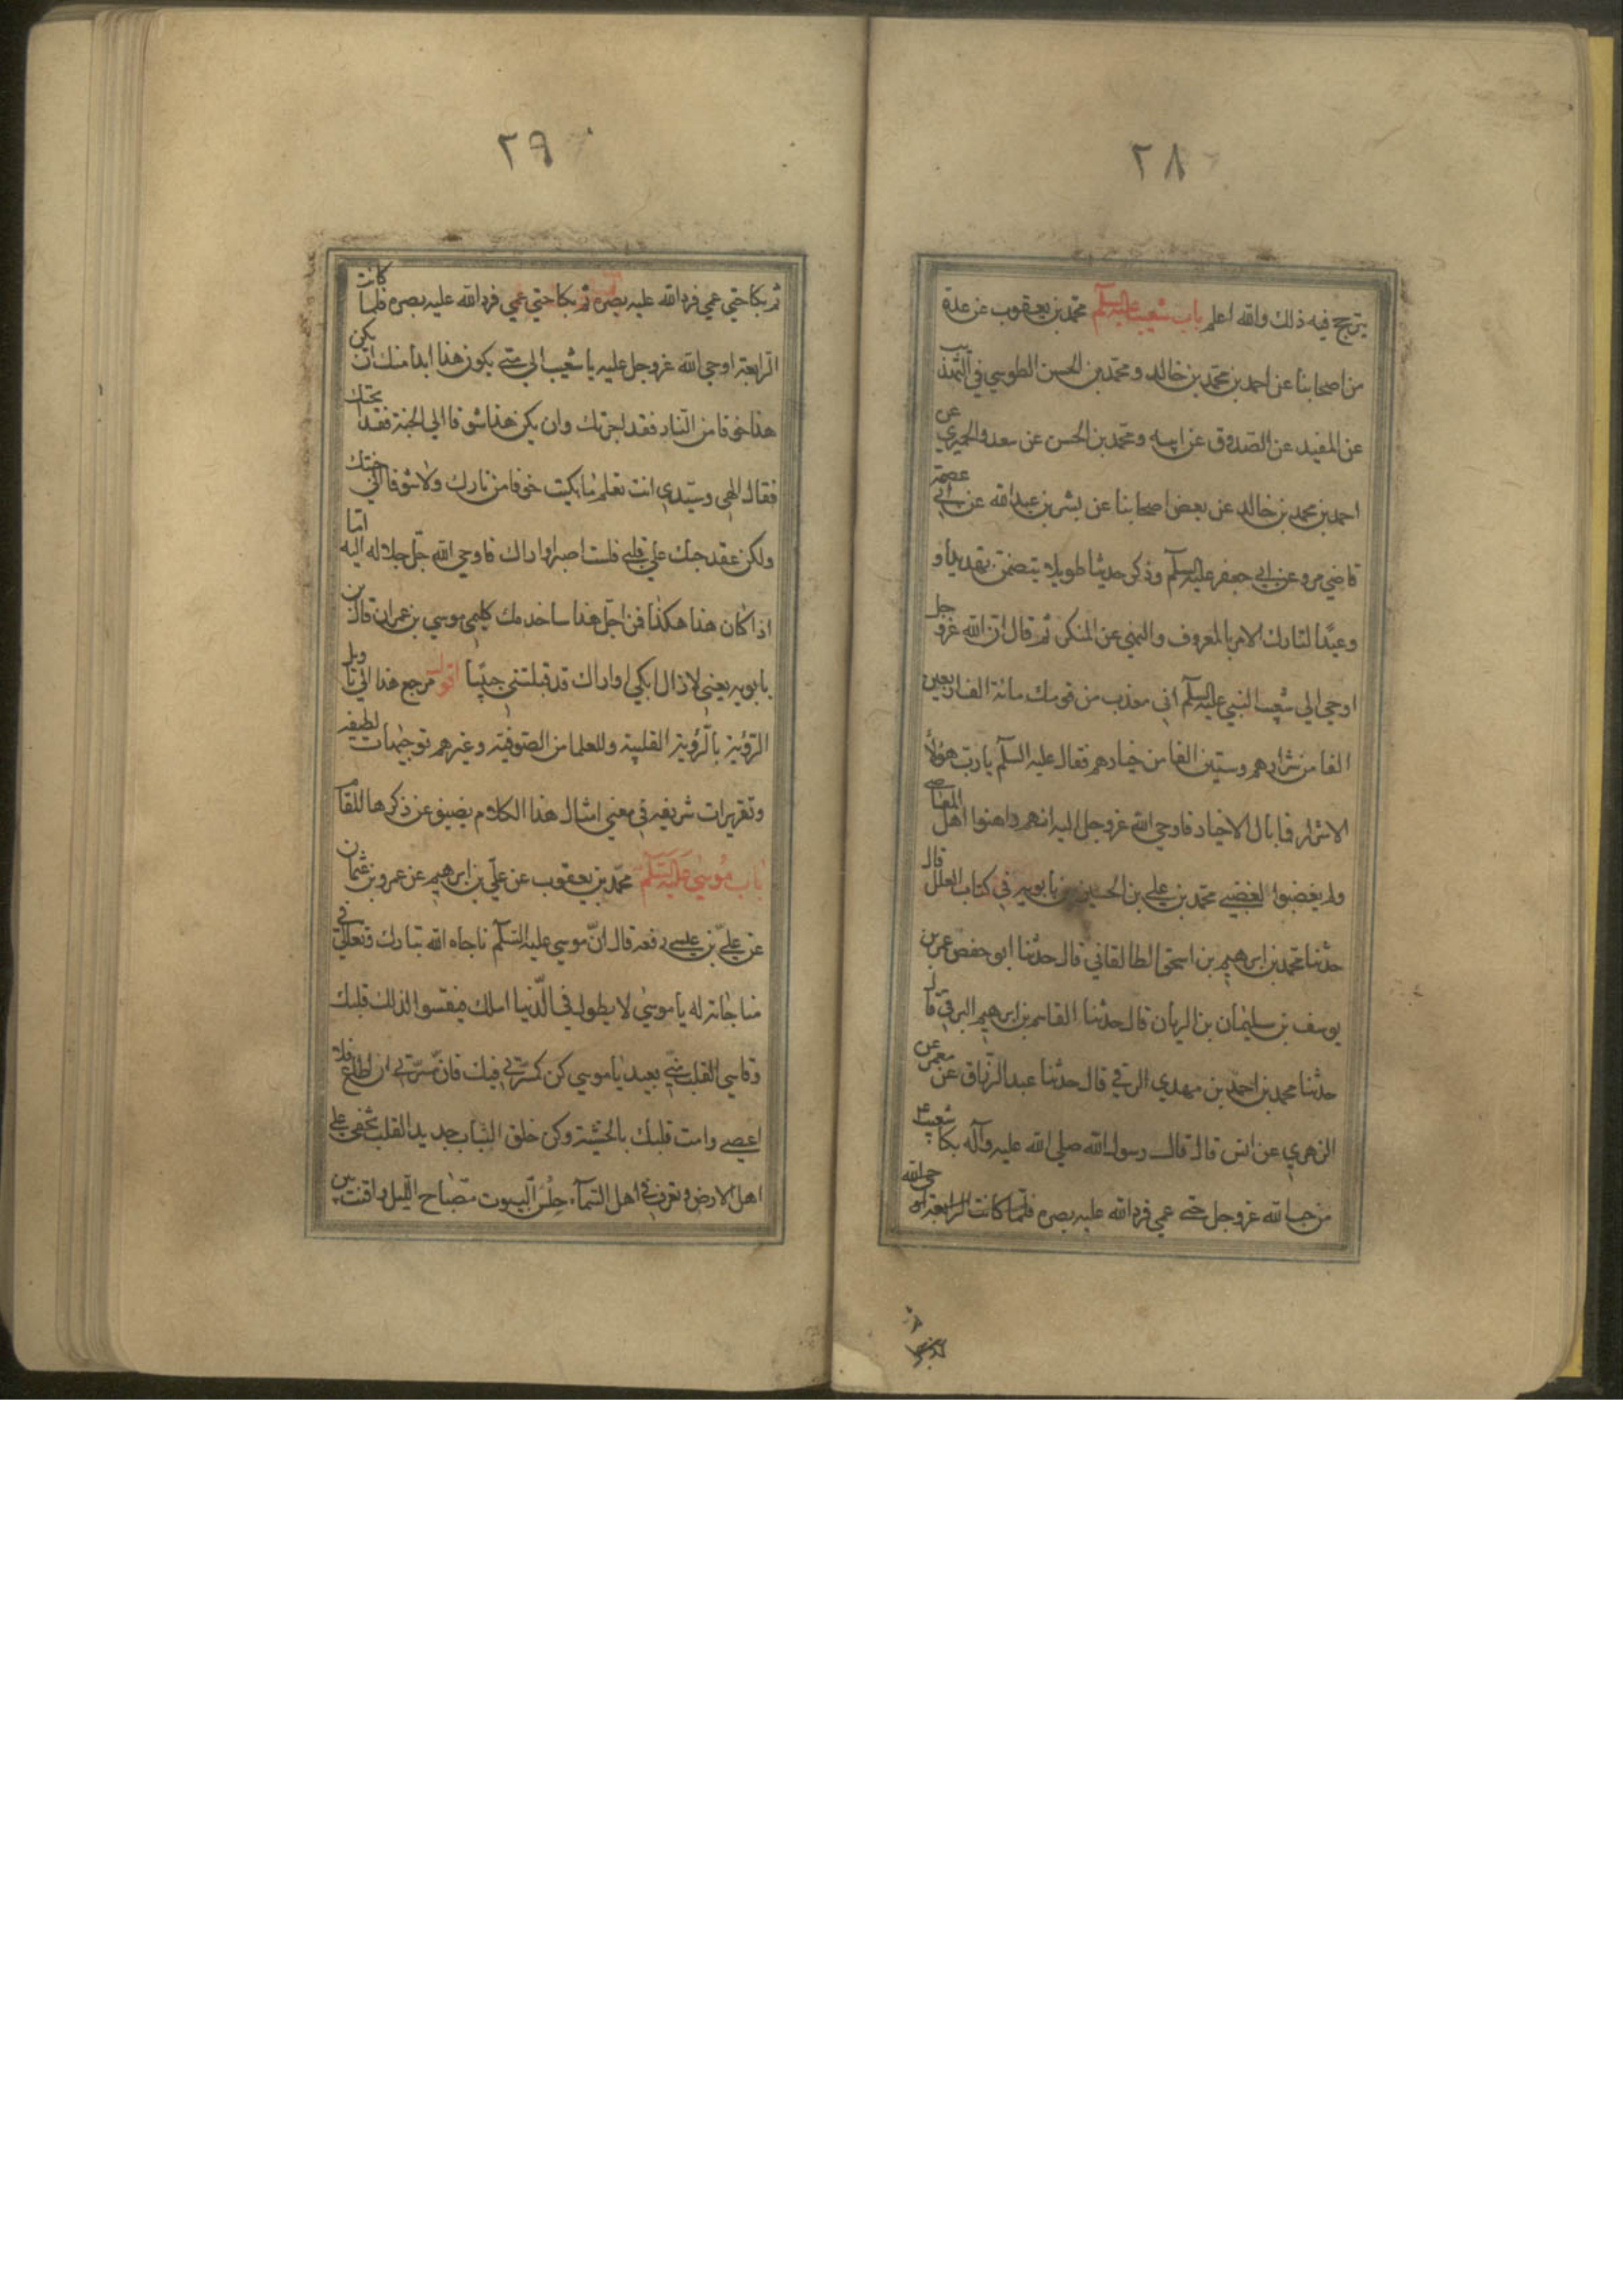 ٢٨
يترجح فيه ذلك والله اعلم باب شعيب عليه السلم محمد بن يعقوب عن عدة
من اصحابنا عن احمد بن محمد بن خالد ومحمد بن الحسن الطوسي في التهذيب
عن المفيد عن الصدوق عن ابيه ومحمد بن الحسن عن سعد والحميري عن
احمد بن محمد بن خالد عن بعض اصحابنا عن بشر بن عبدالله عن ابي عصمة
قاضي مرو عن ابي جعفر عليه السلم وذكر حديثا طويلا يتضمن تهديدا و
وعيدا لتارك الامر بالمعروف والنهي عن المنكر ثم قال ان الله عزو جل
اوحي الي شعيب النبي عليه السلم اني معذب من قومك مائة الف اربعين
الفا من شرارهم وستين الفا من خيارهم فقال عليه السلم يارب هؤلآ
الاشرار فما بال الاخيار فاوحي الله عزوجل اليه انهم داهنوا اهل المعاصي
ولم يغضبوا لغضبي محمد بن علي بن الحسين بن بابويه في كتاب العلل قال
حدثنا محمد بن ابرهيم بن اسحق الطالقاني قال حدثنا ابو حفص عمر بن
يوسف بن سليمان بن الريان قال حدثنا القاسم بن ابرهيم البرقي قال
حدثنا محمد بن احمد بن مهدي الرقي قال حدثنا عبد الرزاق عن معمر عن
الزهري عن انس قال قال رسول الله صلي الله عليه وآله بكا شعيب ع
من حب الله عزوجل حتي عمي فرد الله عليه بصره فلما كانت الرابعة اوحي الله
٢٩
ثم بكا حتي عمي فرد الله عليه بصره ثم بكا حتي عمي فرد الله عليه بصره فلما كانت
الرابعة اوحي الله عزوجل عليه يا شعيب الي متي يكون هذا ابدا منك ان يكن
هذا خوفا من النار فقد اجرتك وان يكن هذا شوقا الي الجنة فقد ابحتك
فقال الهي وسيدي انت تعلم ما بكيت خوفا من نارك ولا شوقا الي جنتك
ولكن عقد حبك علي قلبي فلست اصبر او اراك فاوحي الله جل جلاله اليه اما
اذا كان هذا هكذا فمن اجل هذا ساخدمك كليمي موسي بن عمران قال بن
بابويه يعني لا ازال ابكي او اراك قد قبلتني حبيبا اقول مرجع هذا الي تاويل
الرؤية بالرؤية القلبية وللعلما من الصوفية وغيرهم توجيهات لطيفه
وتقريرات شريفه في معني امثال هذا الكلام يضيق عن ذكرها المقام
باب موسي عليه السلم محمد بن يعقوب عن علي بن ابرهيم عن عمرو بن عثمان
عن علي بن عيسي رفعه قال ان موسي عليه السلم ناجاه الله تبارك وتعالي في
مناجاته له يا موسي لا يطول في الدنيا املك فيقسوا لذلك قلبك
وقاسي القلب مني بعيد يا موسي كن كمسرتي فيك فان مسرتي ان اطاع فلا
اعصي وامت قلبك بالخشية وكن خلق الثياب جديد القلب تخفي علي
اهل الارض وتعرف في اهل السمآء حلس البيوت مصباح الليل واقنت بين